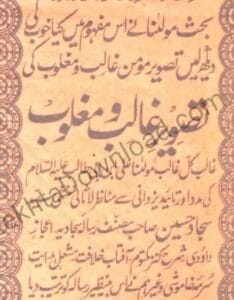 بحث مولنانے اس مفہوم میں کیا خوب کی
دیکھ لیں تصویر مومن غالب و مغلوب کی
تصویر غالب و مغلوب
غالب کل غالب مولنا علی علیہ السلام
کی مدد اور تائید یزدانی سے مناظر لاثانی
سجاد حسین صاحب مصنف رسالہ
داؤدی شرح آفتاب خلافت مشعل ہدایت
نے اس بینظیر رسالہ کو ترتیب دیا
ekhtaDownload.com